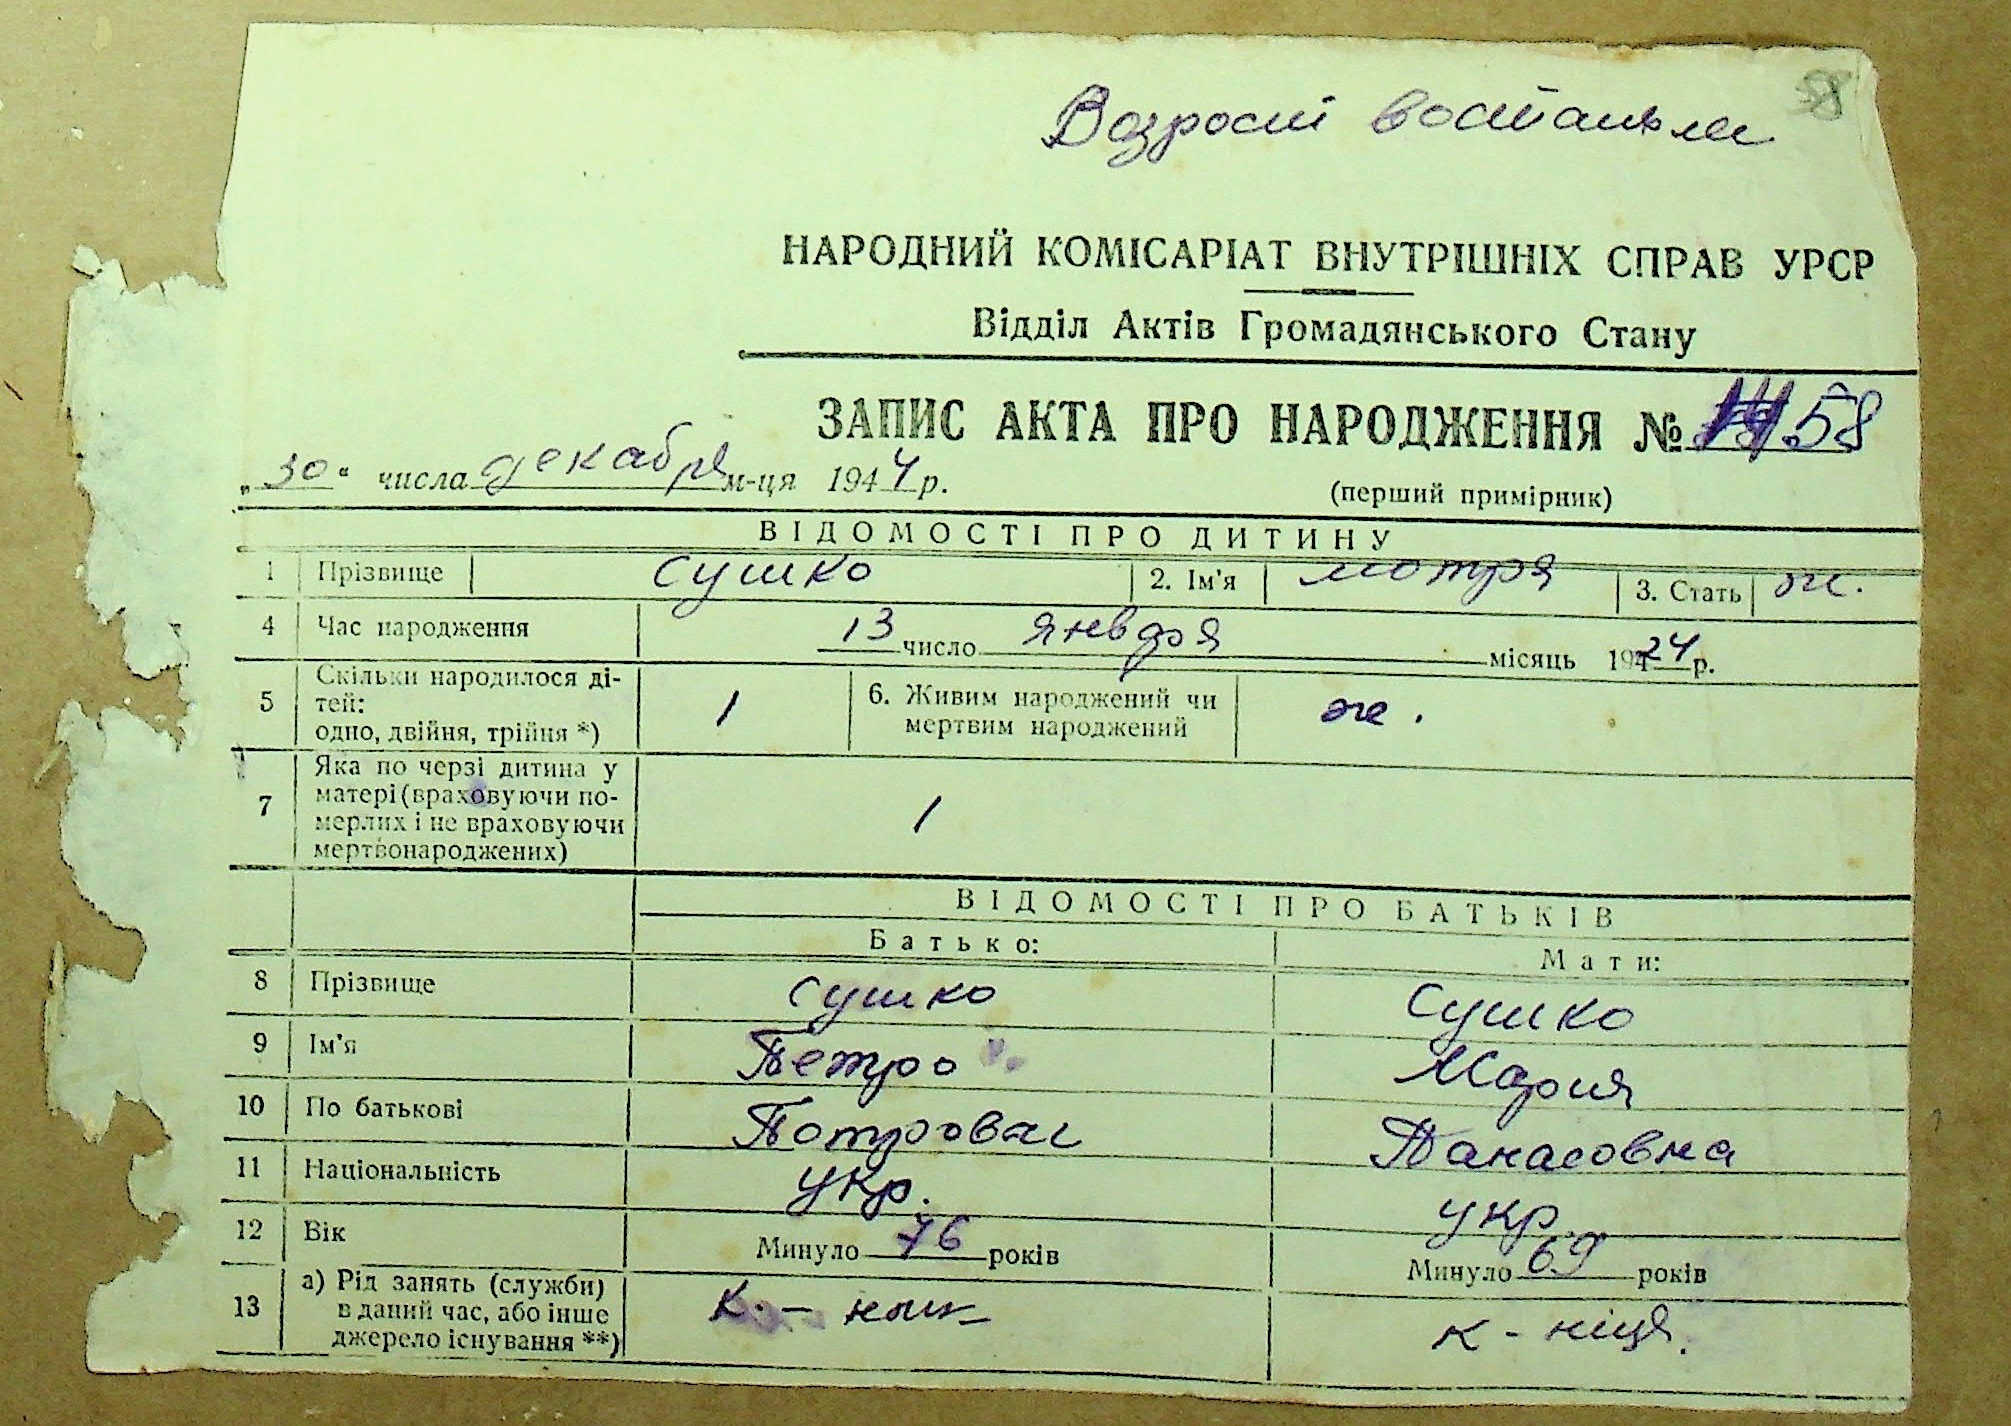 58
НАРОДНИЙ КОМІСАРІАТ ВНУТРІШНІХ СПРАВ УРСР
Відділ Актів Громадянського Стану
ЗАПИС АКТА ПРО НАРОДЖЕННЯ № 58
„30“ числа декабря м-ця 1944 р.
(перший примірник)
ВІДОМОСТІ ПРО ДИТИНУ
1 Прізвище Сушко 2. Ім'я мотря 3. Стать ж.
4 Час народження 13 число января місяць 1924 р.
5 Скільки народилося ді-
тей:
одно, двійня, трійня *) 1
6. Живим народжений чи
мертвим народжений ж.
7 Яка по черзі дитина у
матері (враховуючи по-
мерлих і не враховуючи
мертвонароджених) 1
ВІДОМОСТІ ПРО БАТЬКІВ
Батько: Мати:
8 Прізвище Сушко Сушко
9 Ім'я Петро Мария
10 По батькові Панасовна
11 Національність укр. укр.
12 Вік Минуло 76 років Минуло 69 років
13 а) Рід занять (служби)
в даний час, або інше
джерело існування **) к-ник к-ніця.